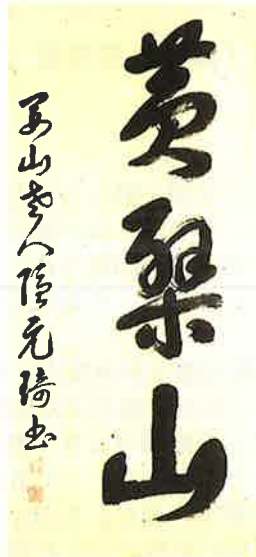 黄檗山
山老人隱元琦書